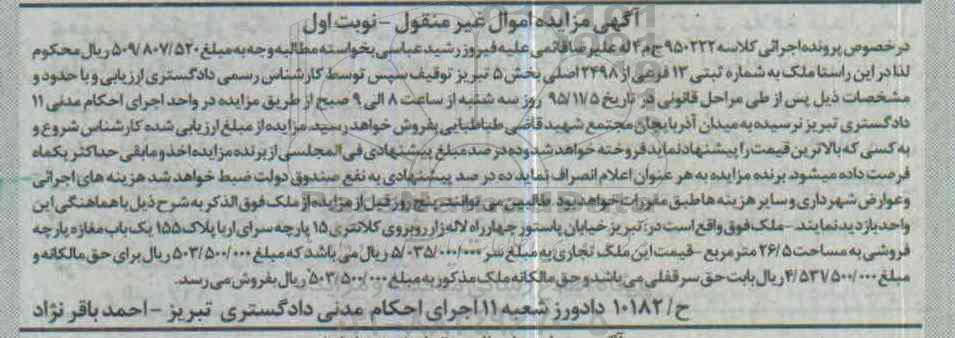 آگهی مزایده اموال غیر منقول - نوبت اول
در خصوص پرونده اجرائی کلاسه ۹۵۰۲۲۲ ج م ۴ له علیرضا قائمی علیه فیروز رشید عباسی بخواسته مطالبه وجه به مبلغ ۵۰۹/۸۰۷/۵۲۰ ریال محکوم
لذا در این راستا ملک به شماره ثبتی ۱۳ فرعی از ۲۴۹۸ اصلی بخش ۵ تبریز توقیف سپس توسط کارشناس رسمی دادگستری ارزیابی و با حدود و
مشخصات ذیل پس از طی مراحل قانونی در تاریخ ۹۵/۱۱/۵ روز سه شنبه از ساعت ۸ الی ۹ صبح از طریق مزایده در واحد اجرای احکام مدنی ۱۱
دادگستری تبریز نرسیده به میدان آذربایجان مجتمع شهید قاضی طباطبایی بفروش خواهد رسید. مزایده از مبلغ ارزیابی شده کارشناس شروع و
به کسی که بالاترین قیمت را پیشنهاد نماید فروخته خواهد شد و ده در صد مبلغ پیشنهادی فی المجلسی از برنده مزایده اخذ و مابقی حداکثر یکماه
فرصت داده میشود. برنده مزایده به هر عنوان اعلام انصراف نماید ده در صد پیشنهادی به نفع صندوق دولت ضبط خواهد شد هزینه های اجرائی
و عوارض شهرداری و سایر هزینه ها طبق مقررات خواهد بود. طالبین می توانند پنج روز قبل از مزایده از ملک فوق الذکر به شرح ذیل با هماهنگی این
واحد بازدید نمایند - ملک فوق واقع است در: تبریز خیابان پاستور چهارراه لاله زار روبروی کلانتری ۱۵ پارچه سرای اریا پلاک ۱۵۵ یک باب مغازه پارچه
فروشی به مساحت ۲۶/۵ متر مربع - قیمت این ملک تجاری به مبلغ سر ۵/۰۳۵/۰۰۰/۰۰۰ ریال می باشد که مبلغ ۵۰۳/۵۰۰/۰۰۰ ریال برای حق مالکانه و
مبلغ ۴/۵۳۷/۵۰۰/۰۰۰ ریال بابت حق سرقفلی می باشد و حق مالکانه ملک مذکور به مبلغ ۵۰۳/۵۰۰/۰۰۰ ریال بفروش می رسد.
ح/ ۱۰۱۸۲ دادورز شعبه ۱۱ اجرای احکام مدنی دادگستری تبریز - احمد باقر نژاد